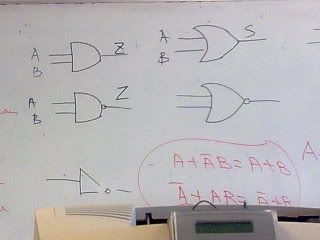 A
B
Z
A
B
S
A
B
Z
A + A̅B = A + B
A̅ + AB = A̅ + B
A